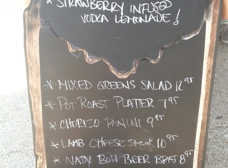 * STRAWBERRY INFUSED
VODKA LEMONADE!
* MIXED GREENS SALAD 12.95
* POT ROAST PLATTER 7.95
* CHORIZO PANINI 9.95
* LAMB CHEESE steak 10.95
* NATTY BOH BEER BRAT 8.95